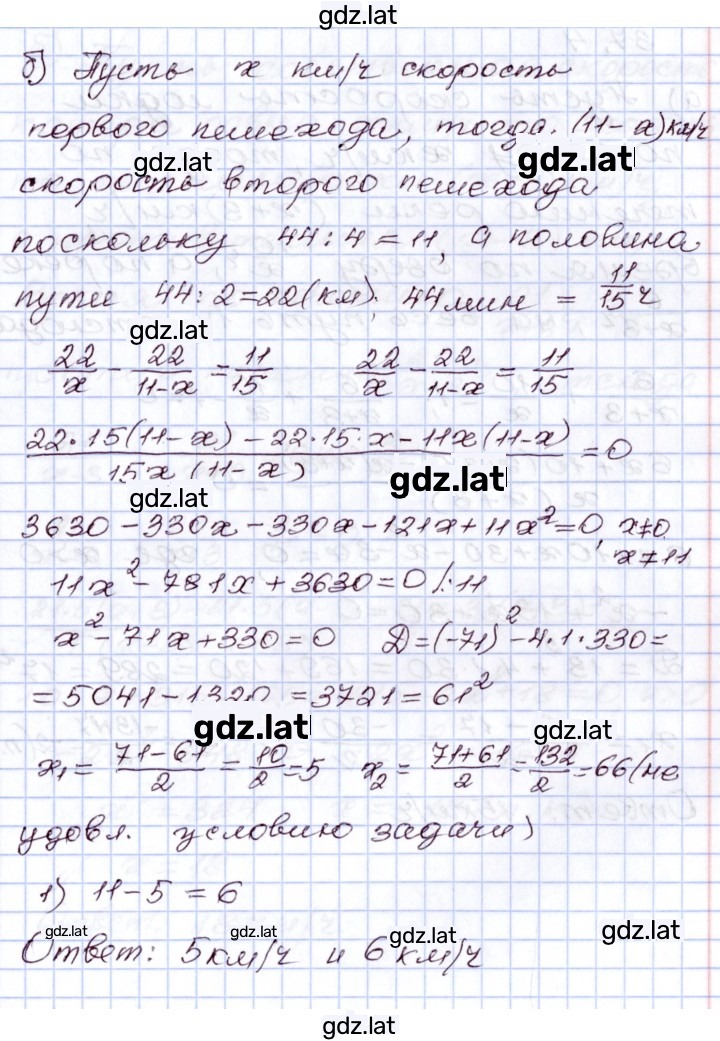 gdz.lat
б) Пусть x км/ч скорость
первого пешехода, тогда (11-x) км/ч
gdz.lat gdz.lat
скорость второго пешехода
поскольку 44:4=11, а половина
пути 44:2=22(км); 44мин = 11/15 ч
gdz.lat
22/x - 22/(11-x) = 11/15 22/x - 22/(11-x) = 11/15
(22·15(11-x) - 22·15·x - 11x(11-x))/(15x(11-x)) = 0
gdz.lat gdz.lat
3630-330x-330x-121x+11x²=0, x≠0
x≠11
11x²-781x+3630=0 /:11
x²-71x+330=0 D=(-71)²-4·1·330=
=5041-1320=3721=61²
gdz.lat gdz.lat
x₁=(71-61)/2=10/2=5 x₂=(71+61)/2=132/2=66(не
удовл. условию задачи)
1) 11-5=6
gdz.lat gdz.lat gdz.lat gdz.lat
Ответ: 5км/ч и 6км/ч
gdz.lat